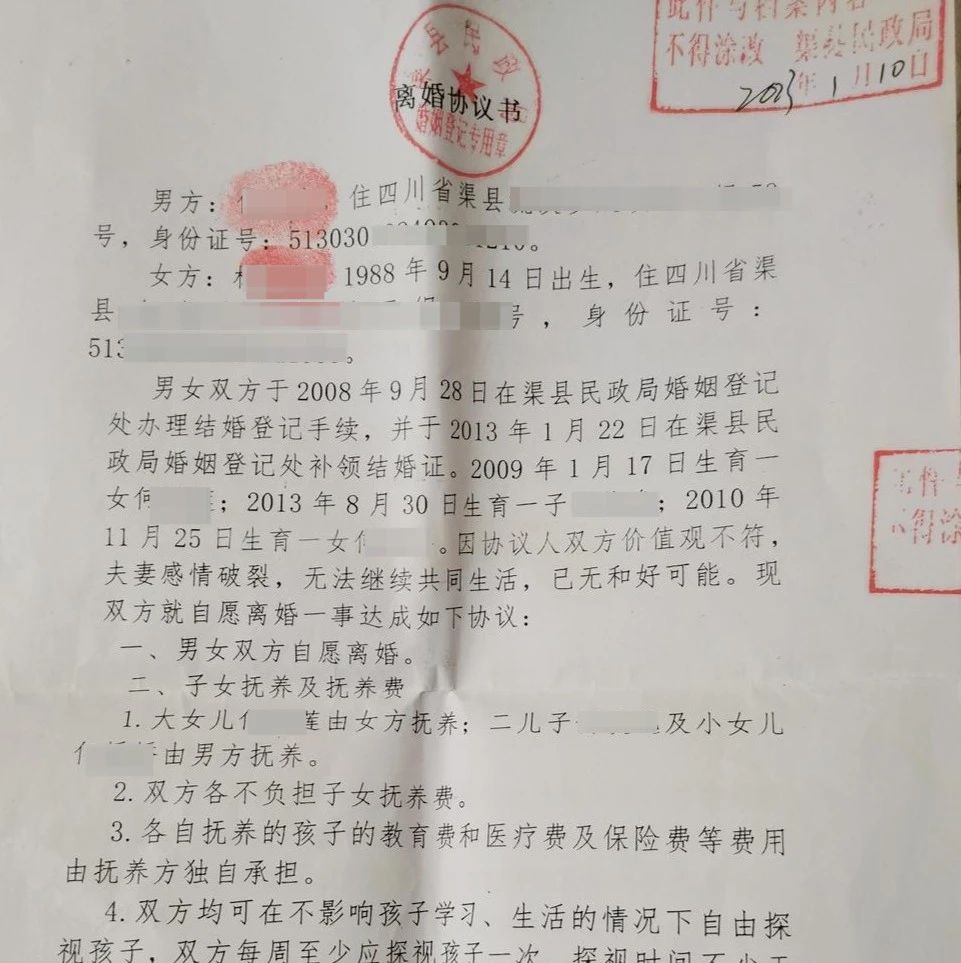 此件与档案内容
不得涂改 渠县民政局
2023年1月10日
县民政
离婚协议书
婚姻登记专用章
男方： 住四川省渠县
号，身份证号：513030 。
女方： 1988年9月14日出生，住四川省渠
县 号，身份证号：
513 。
男女双方于2008年9月28日在渠县民政局婚姻登记
处办理结婚登记手续，并于2013年1月22日在渠县民
政局婚姻登记处补领结婚证。2009年1月17日生育一
女何 ；2013年8月30日生育一子 ；2010年
11月25日生育一女 。因协议人双方价值观不符，
夫妻感情破裂，无法继续共同生活，已无和好可能。现
双方就自愿离婚一事达成如下协议：
一、男女双方自愿离婚。
二、子女抚养及抚养费
1.大女儿 莲由女方抚养；二儿子 及小女儿
由男方抚养。
2.双方各不负担子女抚养费。
3.各自抚养的孩子的教育费和医疗费及保险费等费用
由抚养方独自承担。
4.双方均可在不影响孩子学习、生活的情况下自由探
视孩子，双方每周至少应探视孩子一次，探视时间不少于
件
得涂